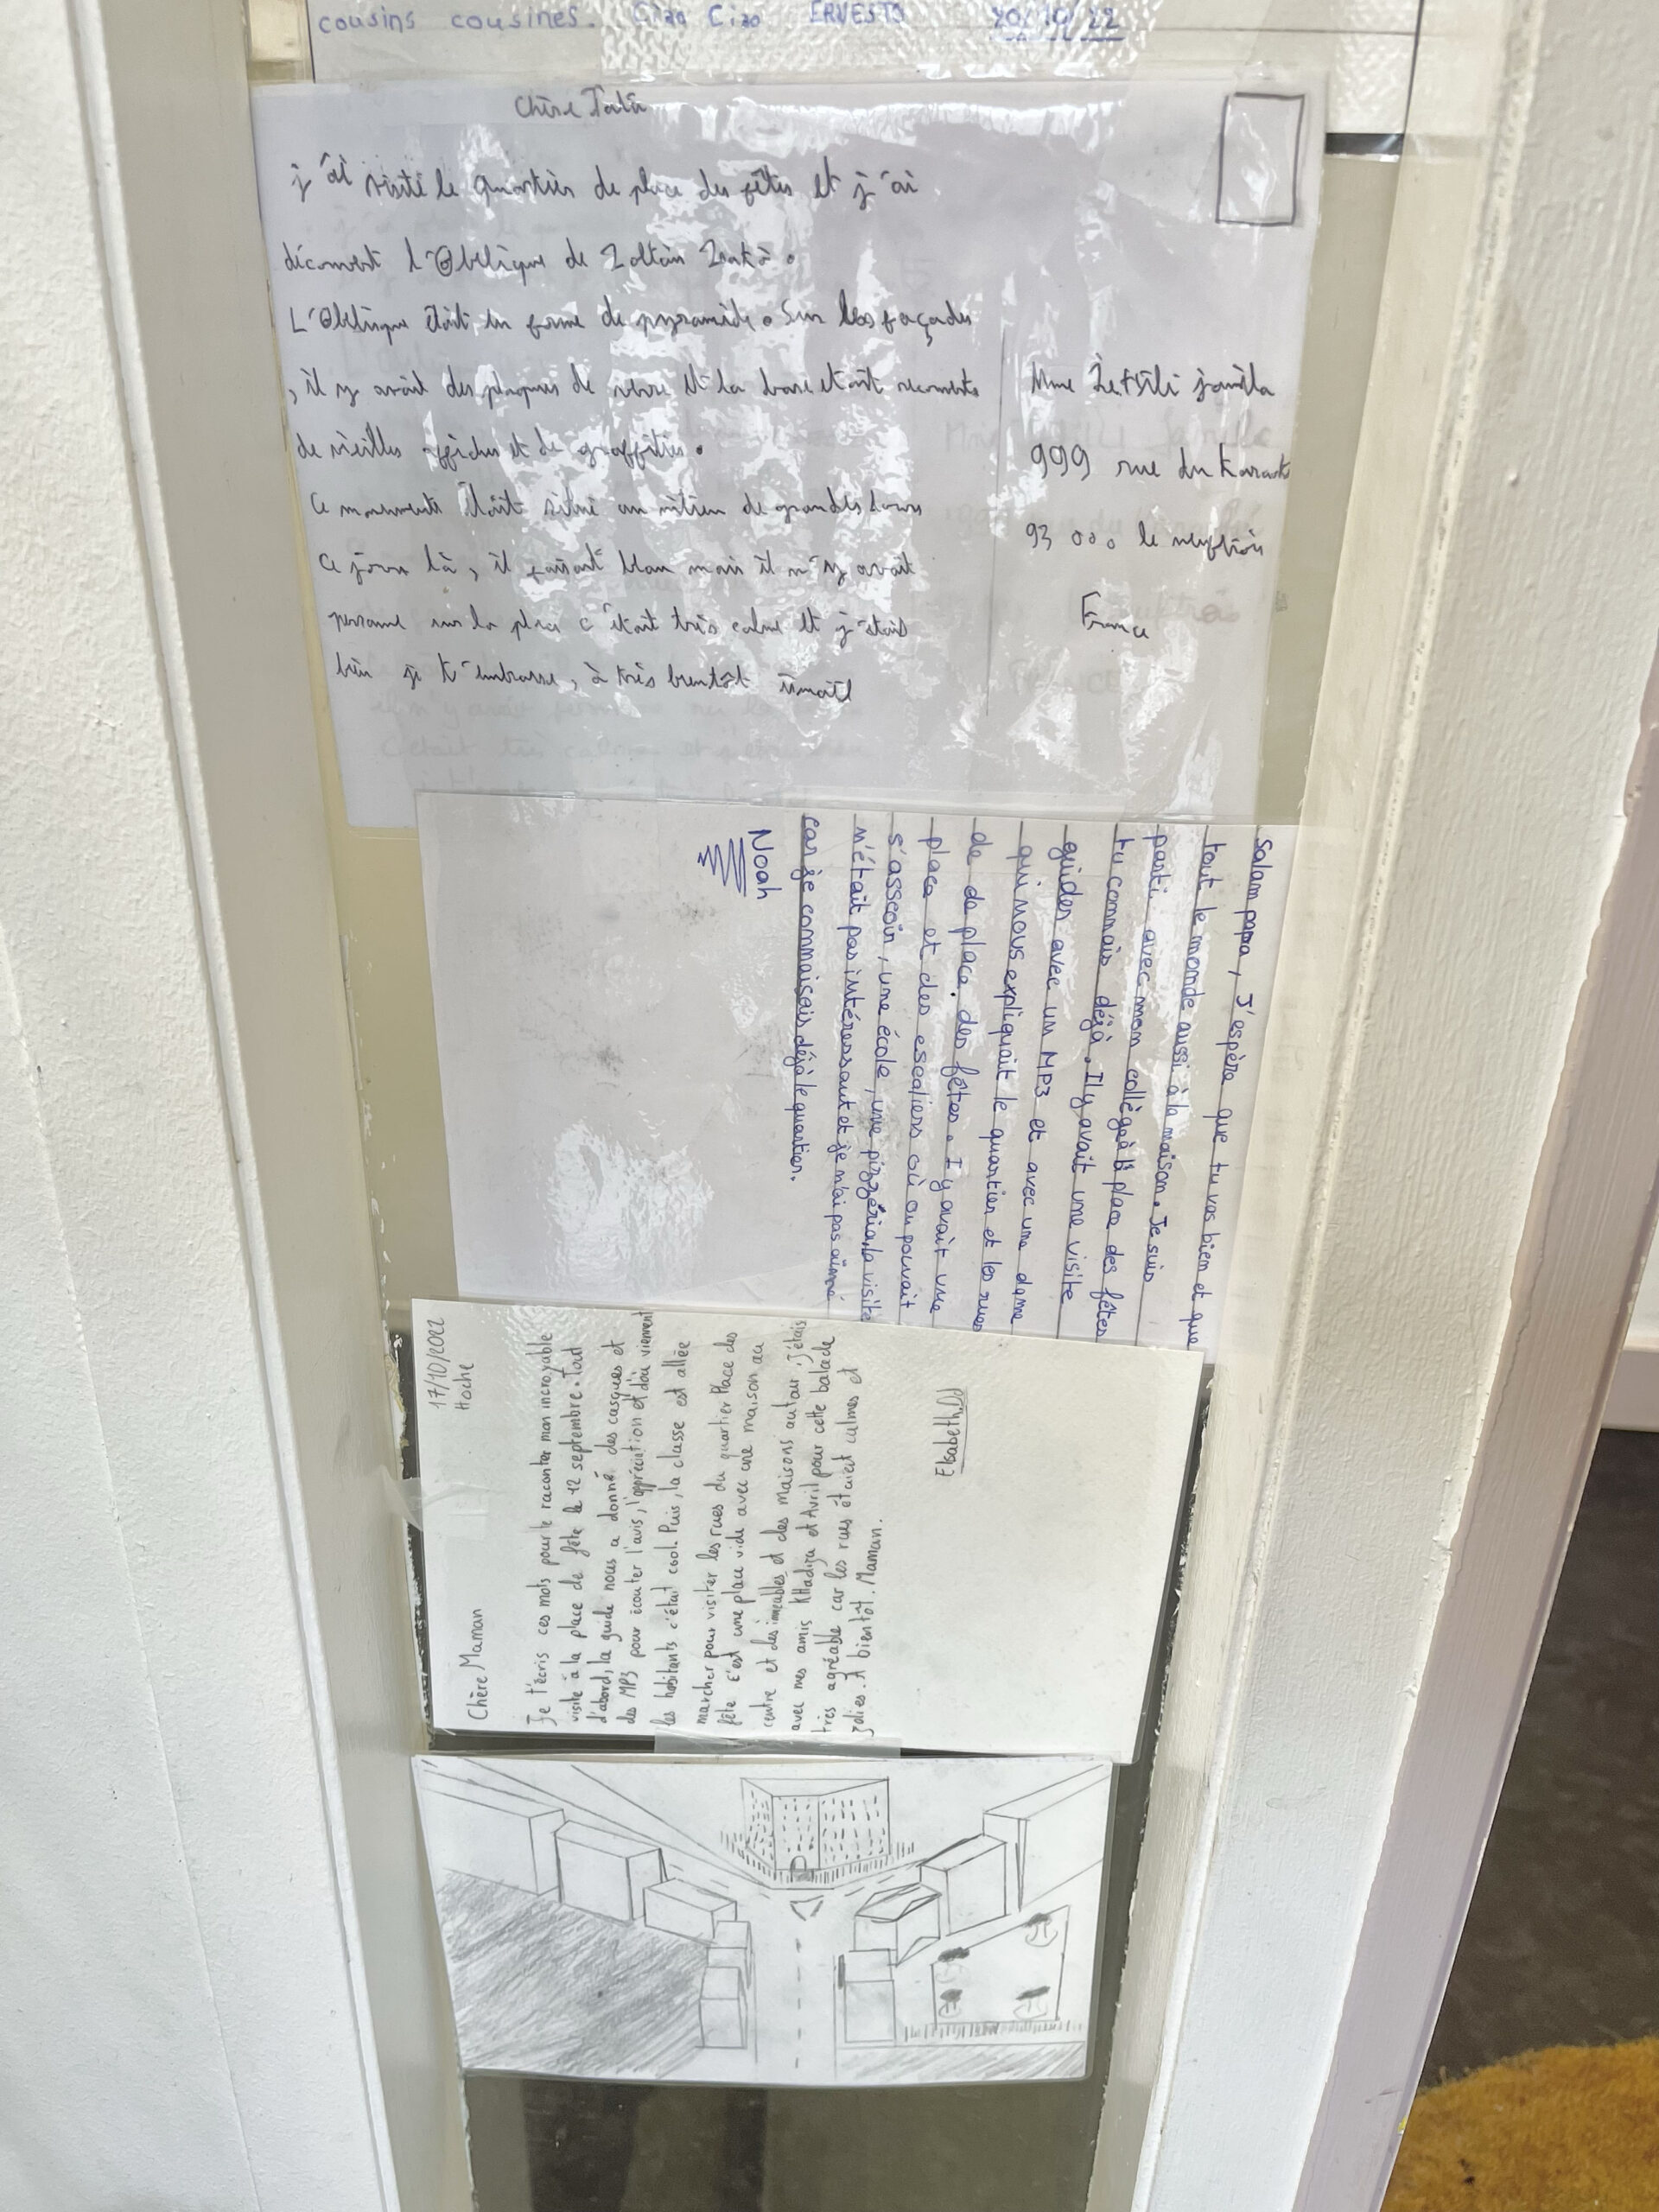 cousins cousines. Ciao Ciao ERNESTO 20/10/22
Chère Tata
j'ai visité le quartier de place des fêtes et j'ai
découvert l'Obelique de Zoltán
L'Obelisque était en forme de pyramide. Sur les façades
, il y avait des plaques de verre et la base etait recouverte
de vieilles affiches et de graffities.
Ce monuments était situé au milieu de grandes tours
Ce jour là, il faisait beau mais il n'y avait
personne sur la place c'était très calme et j'étais
bien je t'embrasse, à très bientôt ismaïl
Mme jamila
999 rue du Karaté
93 000 le
France
Salam papa, J'espère que tu vas bien et que
tout le monde aussi à la maison. Je suis
parti avec mon collège à la place des fêtes
tu connais déjà. Il y avait une visite
guider avec un MP3 et avec une dame
qui nous expliquait le quartier et les rues
de de place. des fêtes. I y avait une
place et des escaliers où on pouvait
s'asseoir, une école, une pizzéria, la visite
n'était pas intéressant et je n'ai pas aimé
car je connaisais déjà le quartier.
Noah
17/10/2022
Hoche
Chère Maman
Je t'écris ces mots pour te raconter mon incroyable
visite à la place de fête le 12 septembre. Tout
d'abord, la guide nous a donné des casques et
des MP3 pour écouter l'avis, l'appréciation et d'où viennent
les habitants c'était cool. Puis, la classe est allée
marcher pour visiter les rues du quartier Place des
fête c'est une place vide avec une maison au
centre et des imeubles et des maisons autour. J'étais
avec mes amis KHadija et Avril pour cette balade
très agréable car les rues étaient calmes et
jolies. A bientôt. Maman.
Elsabeth.Dd